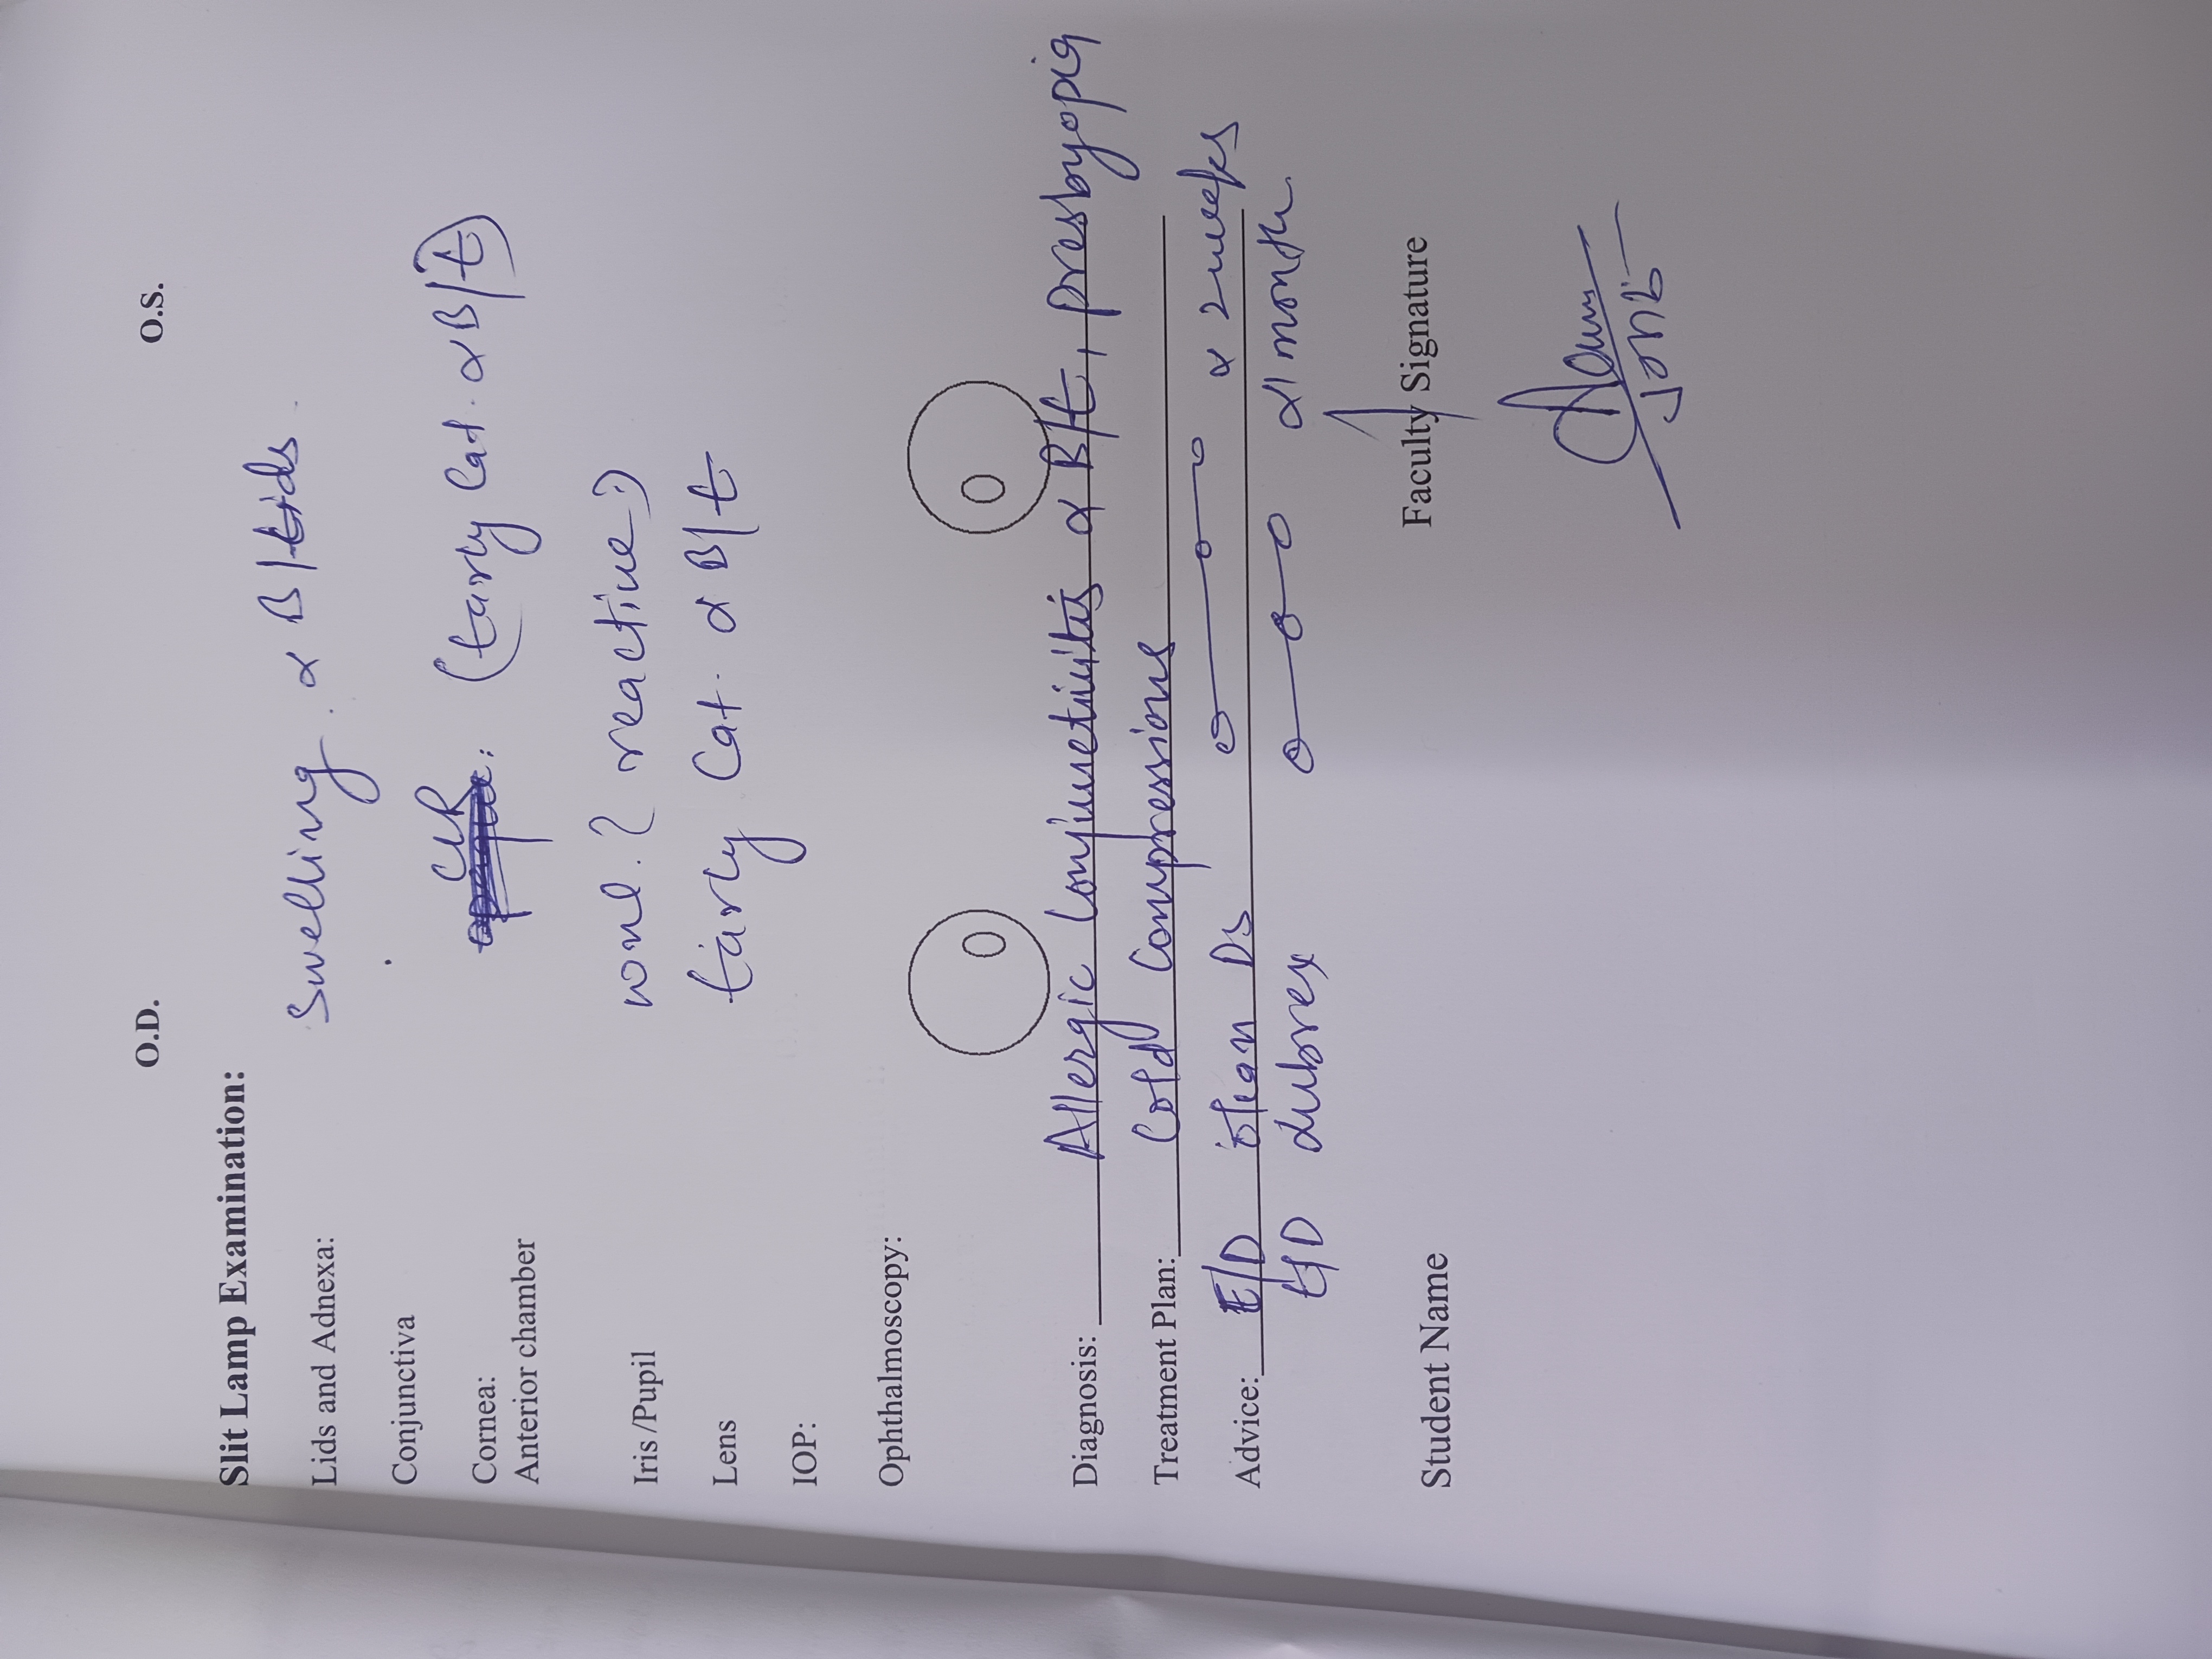 O.D. O.S.
Slit Lamp Examination:
Lids and Adnexa: Swelling α B/Lids
Conjunctiva
Cornea: CLR (Early Cat. α B/E)
Anterior chamber
Iris /Pupil (reactive)
Lens Early Cat. α B/E
IOP:
Ophthalmoscopy:
Diagnosis: Allergic Conjunctivitis α B/E, presbyopia
Treatment Plan: Cold Compressions
Advice: E/D Ds α 2 weeks
E/D Lubrex α 1 month
Student Name Faculty Signature